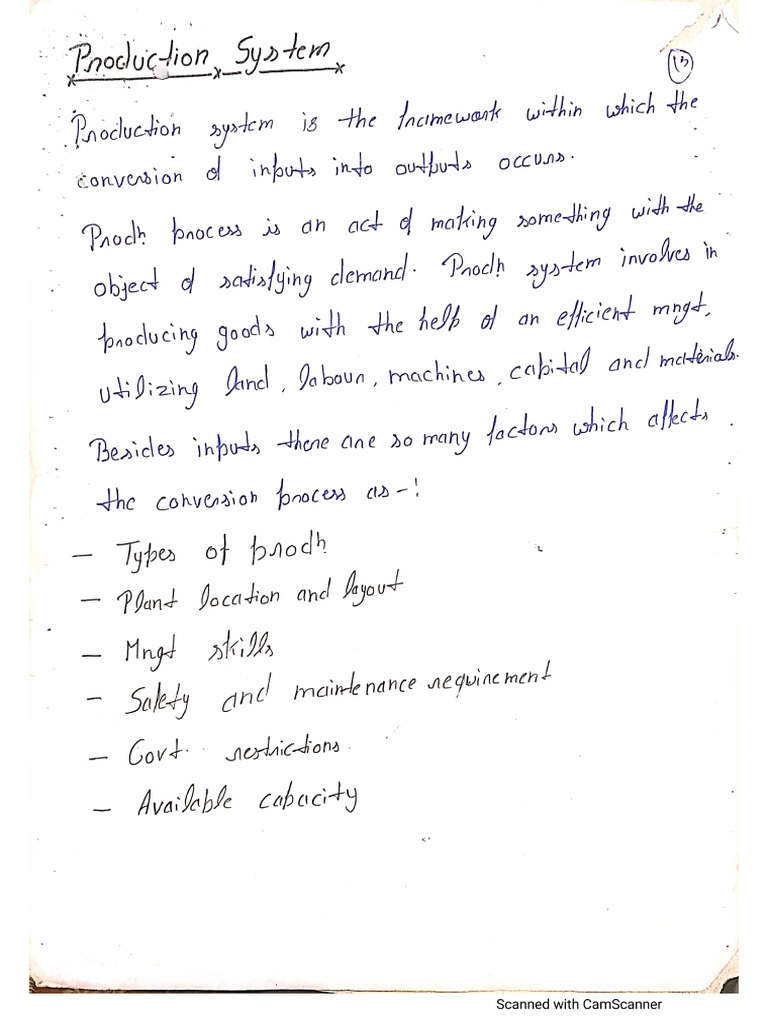 Production System
13
Production system is the framework within which the
conversion of inputs into outputs occurs.
Prodn process is an act of making something with the
object of satisfying demand. Prodn system involves in
producing goods with the help of an efficient mngt,
utilizing land, labour, machines, capital and materials.
Besides inputs there are so many factors which affects
the conversion process as -:
- Types of prodn
- Plant location and layout
- Mngt skills
- Safety and maintenance requirement
- Govt. restrictions.
- Available capacity
Scanned with CamScanner